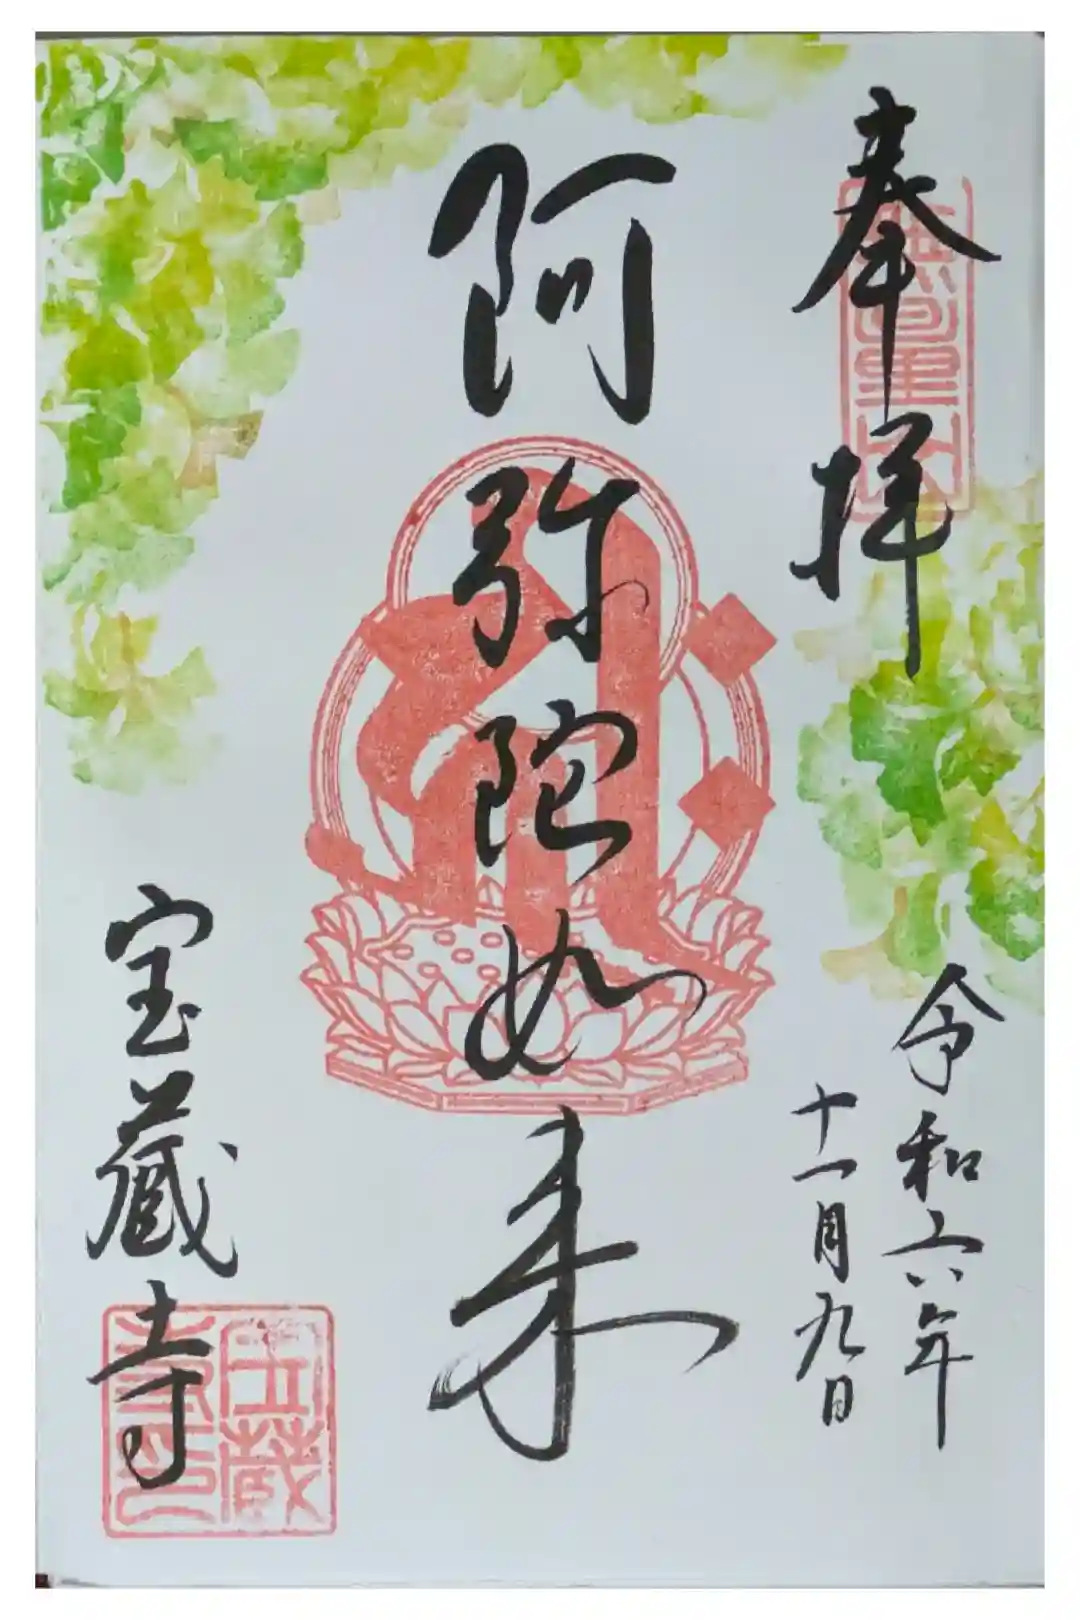 奉拝
令和六年
十一月九日
阿弥陀如来
宝蔵寺